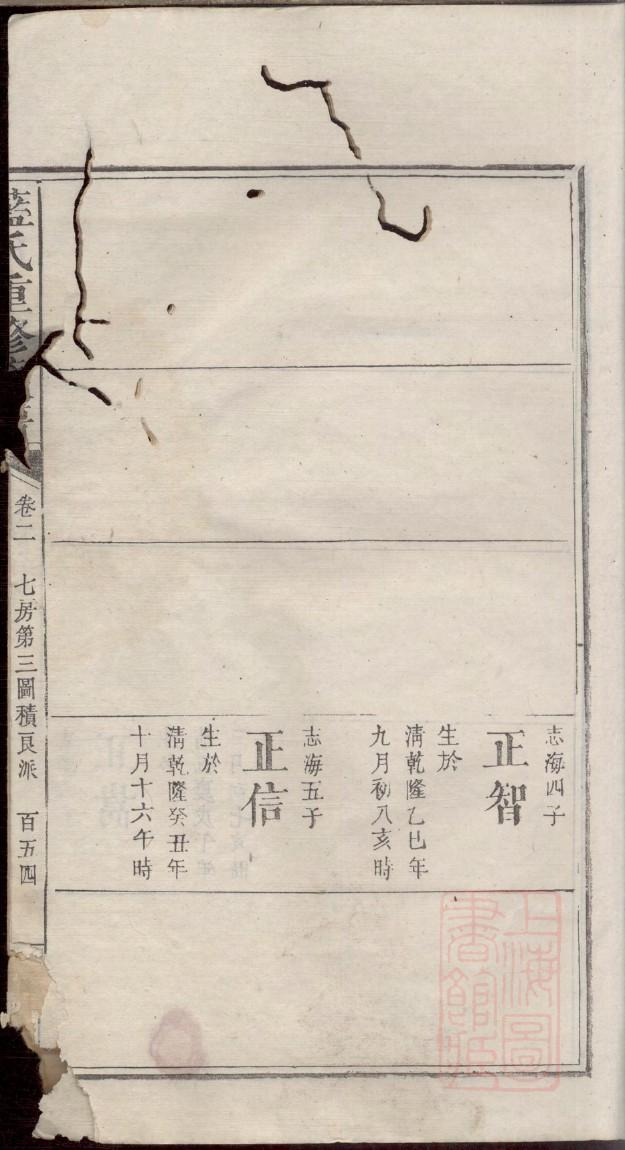 志海四子
正智
生於
清乾隆乙巳年
九月初八亥時
志海五子
正信
生於
清乾隆癸丑年
十月十六午時
藍氏重修
卷二
七房第三圖積良派
百五四
上海圖
書館藏